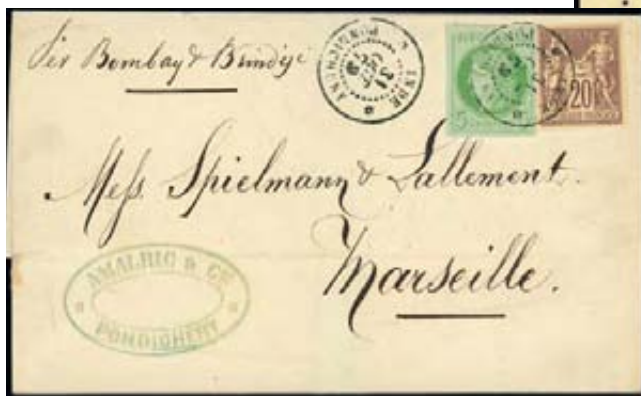 Per Bombay & Brindisi
INDE
PONDICHERY
31
OCT
79
5
20
Mess. Spielmann & Lallement.
Marseille.
AMALRIC & CIE
PONDICHERY